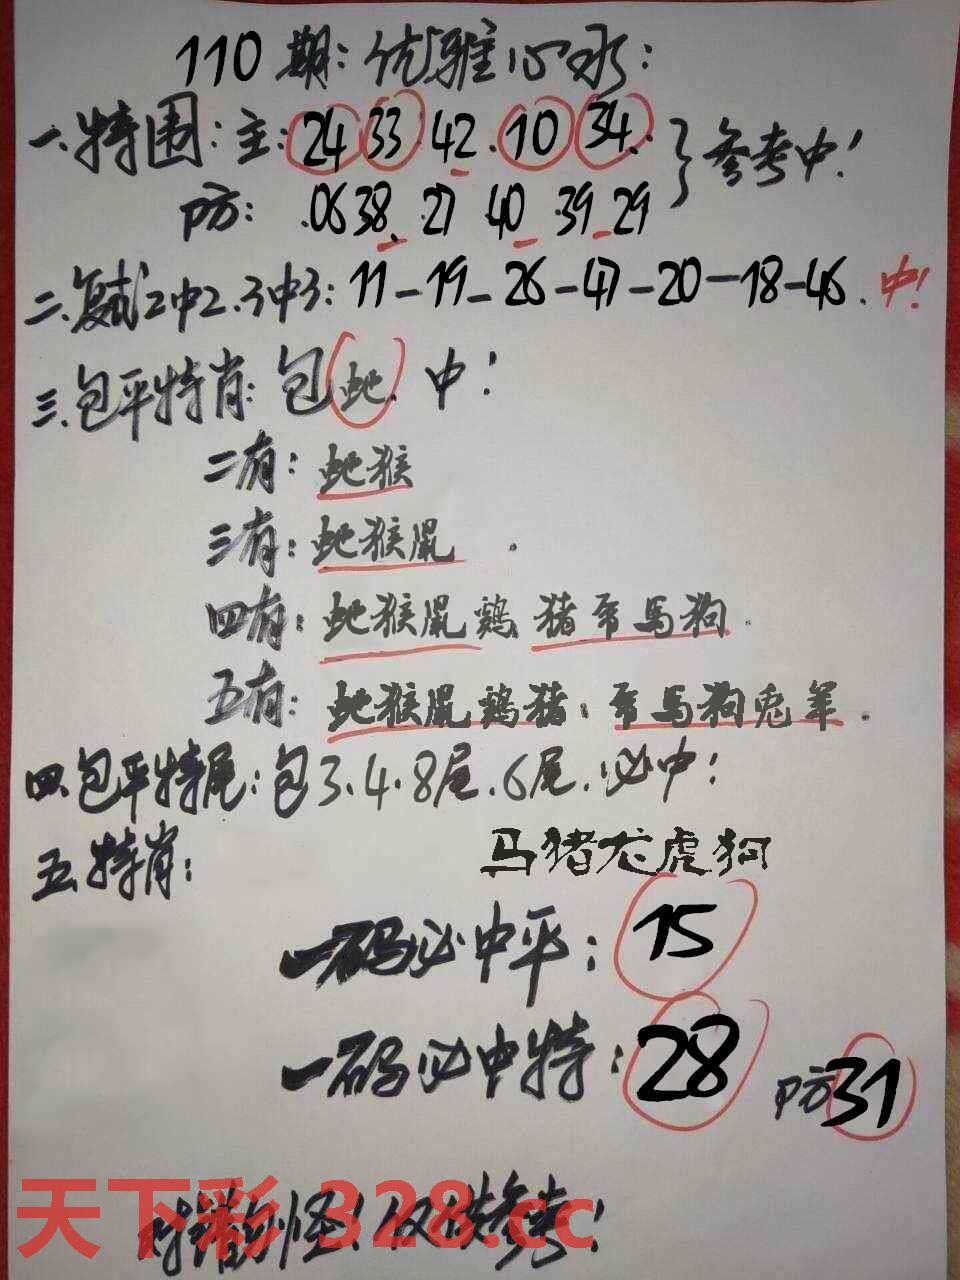 110期：优雅心水：
一.特围：主：24 33 42.10 34.}参考中！
防：.06 38. 27 40 .39 29
二.复式2中2.3中3：11-19-26-47-20-18-46.中！
三.包平特肖：包蛇.中！
二有：蛇猴
三有：蛇猴鼠.
四有：蛇猴鼠鷄.猪帝馬狗.
五有：蛇猴鼠鷄猪：帝馬狗兔羊.
四.包平特尾：包3.4.8尾.6尾.必中！
五.特肖：马猪龙虎狗
一码必中平：15
一码必中特：28 防31
对错勿怪！仅供参考！
天下彩 328.cc